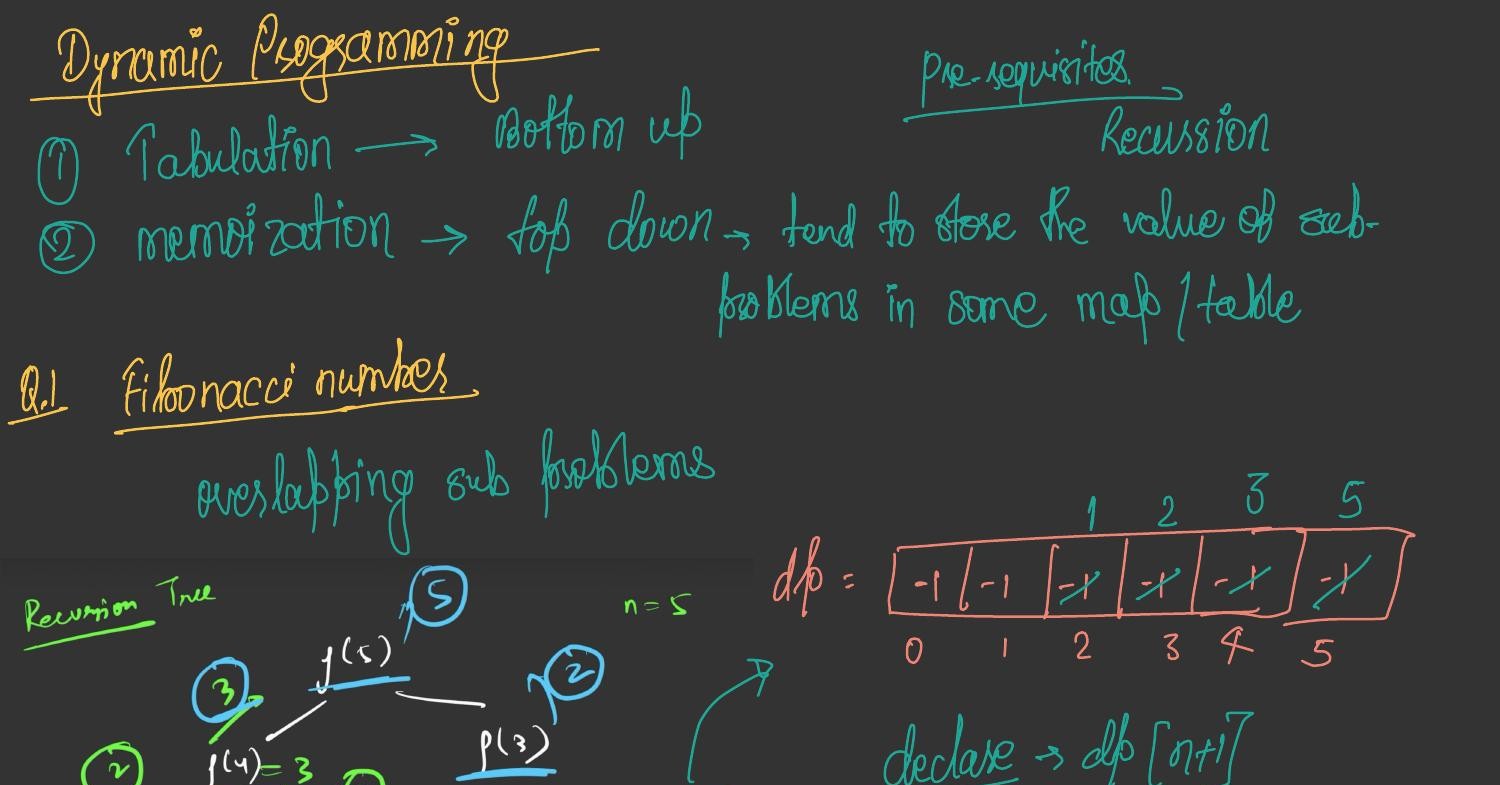 Dynamic Programming
Pre-requisites
Recursion
① Tabulation → Bottom up
② memoization → top down → tend to store the value of sub-
problems in some map / table
Q.1 Fibonacci number
overlapping sub problems
1 2 3 5
dp = -1 -1 -1 -1 -1 -1
0 1 2 3 4 5
Recursion Tree
n = 5
5
f(5)
3 2
f(4) = 3 f(3)
2
declare → dp [n+1]